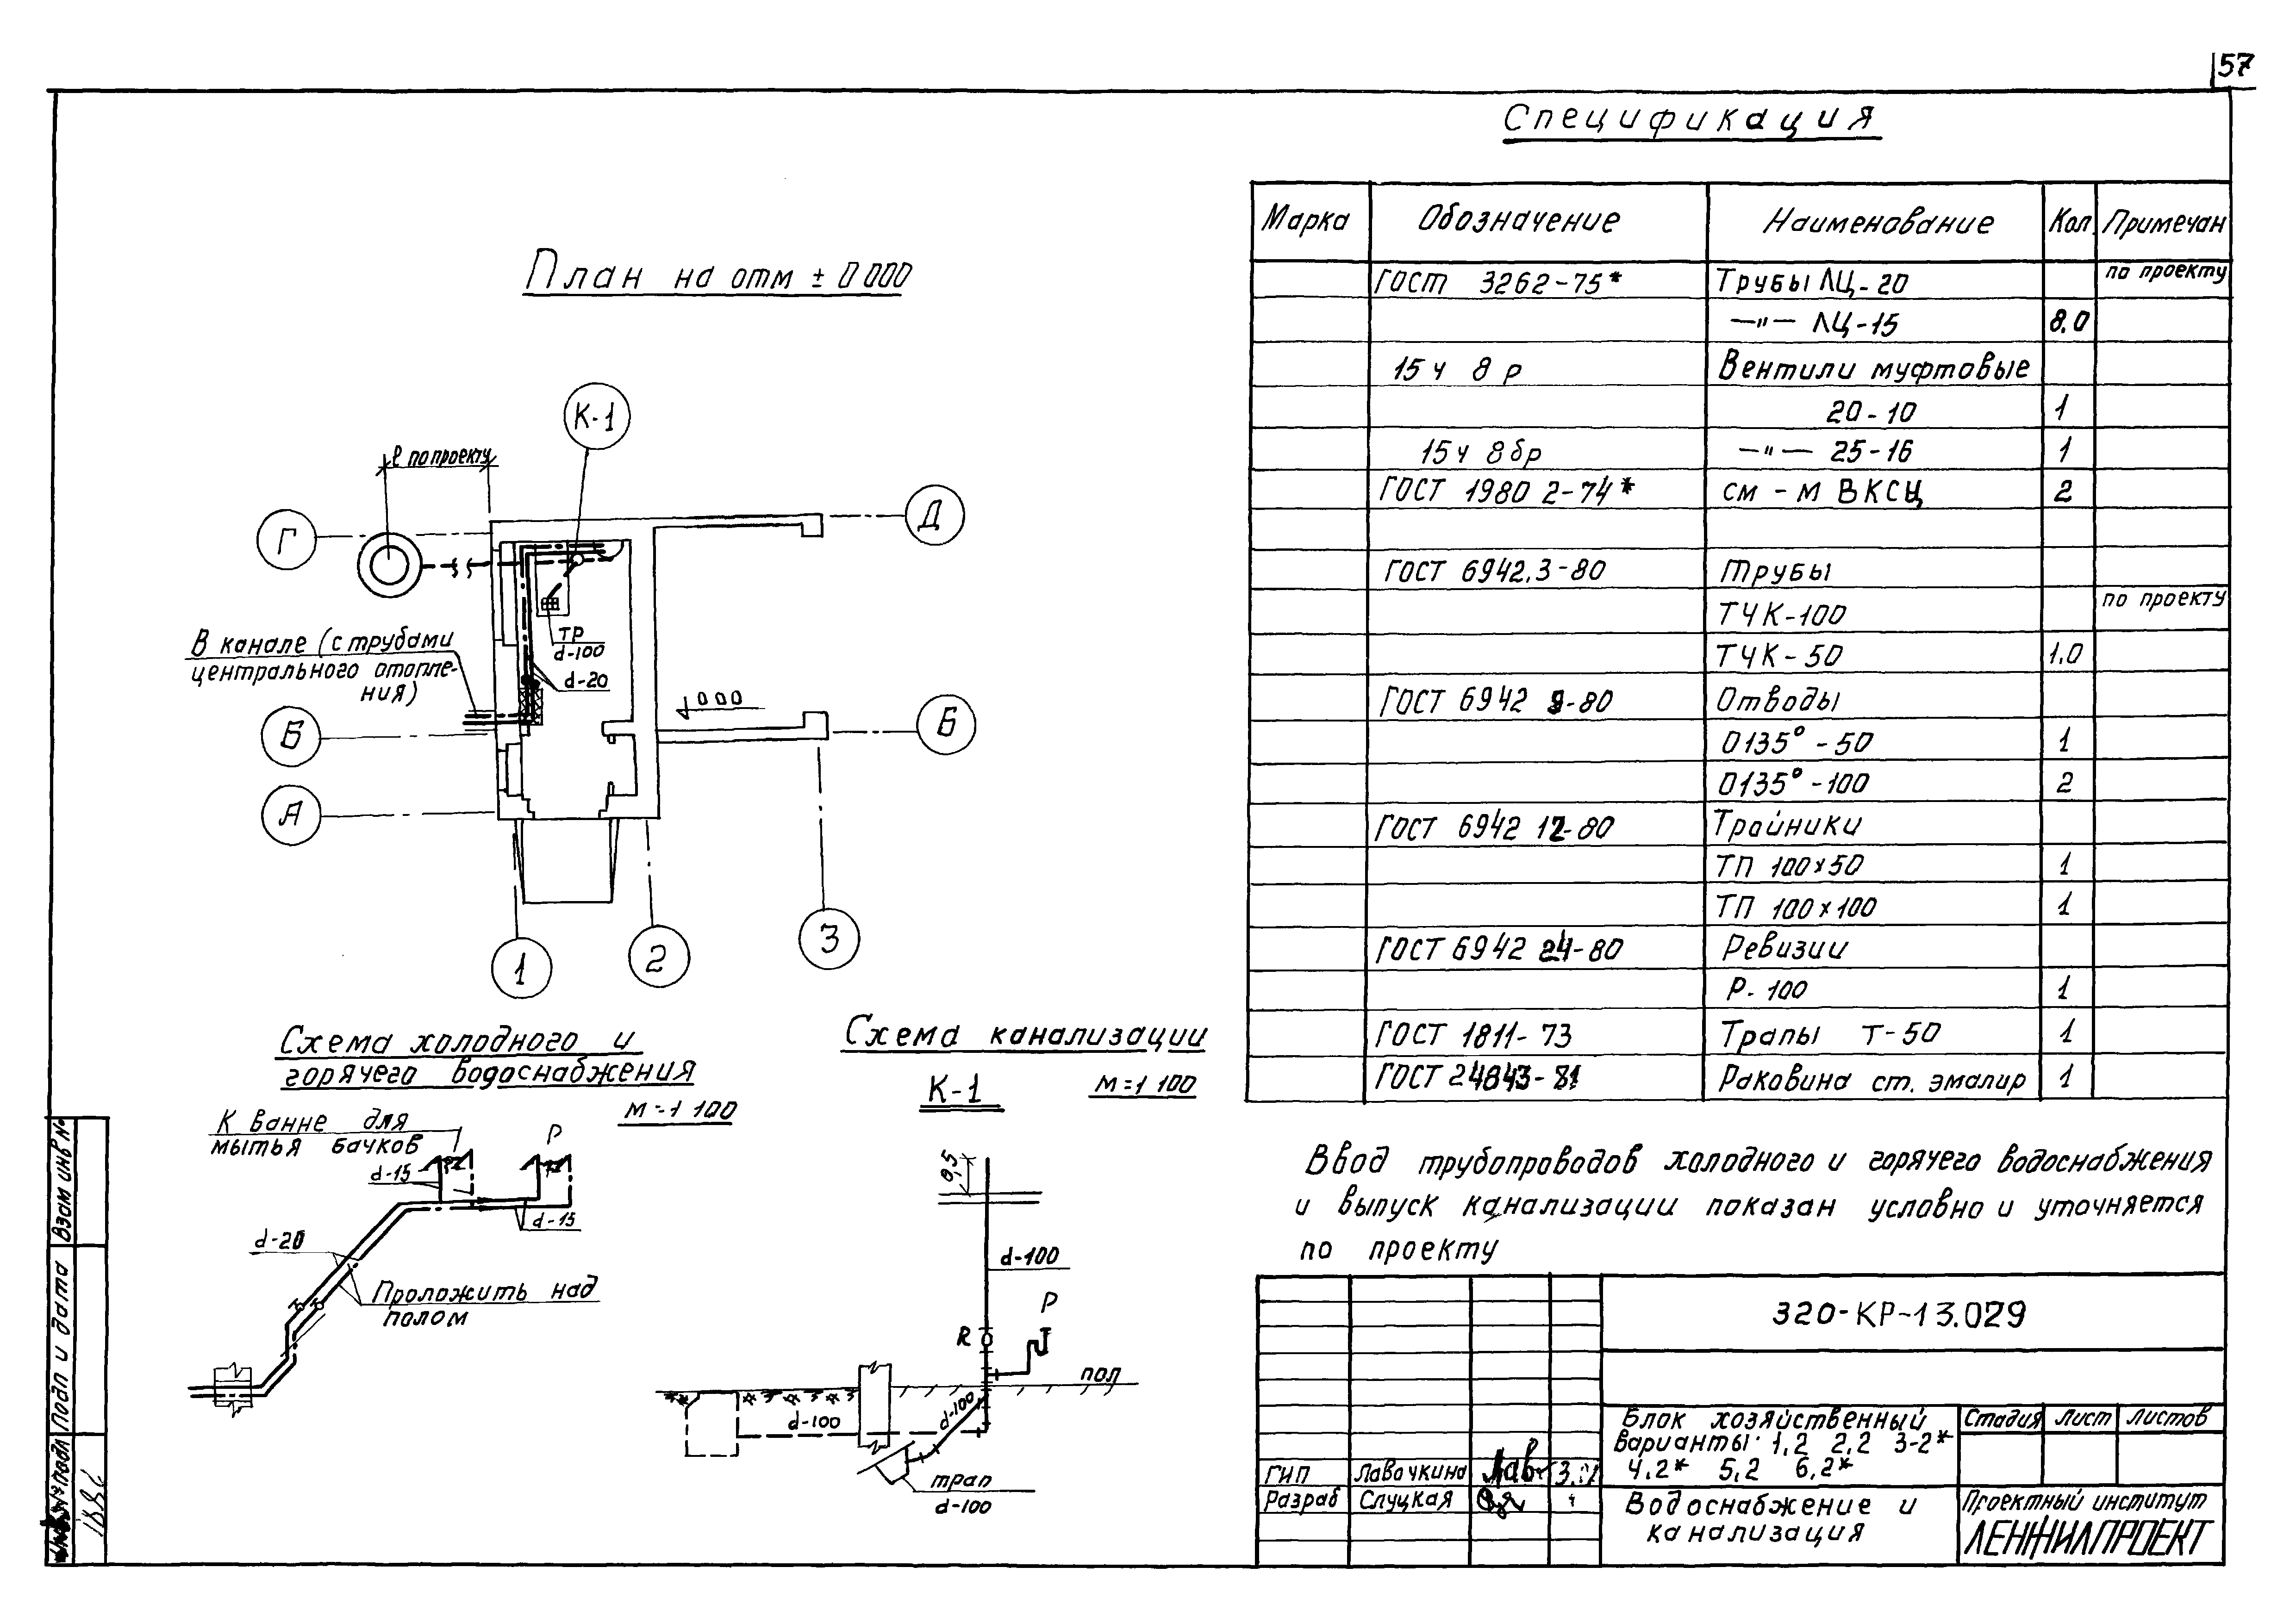 57
Спецификация
Марка Обозначение Наименование Кол. Примечан
ГОСТ 3262-75* Трубы ЛЦ-20 по проекту
—"— ЛЦ-15 8.0
15ч 8р Вентили муфтовые
20-10 1
15ч 8бр —"— 25-16 1
ГОСТ 19802-74* см-м ВКСЦ 2
ГОСТ 6942.3-80 Трубы
ТЧК-100 по проекту
ТЧК-50 1.0
ГОСТ 6942 9-80 Отводы
О135°-50 1
О135°-100 2
ГОСТ 6942 12-80 Тройники
ТП 100×50 1
ТП 100×100 1
ГОСТ 6942 24-80 Ревизии
Р-100 1
ГОСТ 1811-73 Трапы Т-50 1
ГОСТ 24843-81 Раковина ст. эмалир 1
План на отм ± 0 000
К-1
ℓ по проекту
Г
Д
В канале (с трубами
центрального отопле-
ния)
ТР
d-100
d-20
000
Б
Б
А
1
2
3
Схема холодного и
горячего водоснабжения
М=1 100
К ванне для
мытья бачков
Р
d-15
d-15
d-20
Проложить над
полом
Схема канализации
К-1
М=1 100
0,5
d-100
Р
R
пол
d-100
d-100
трап
d-100
Ввод трубопроводов холодного и горячего водоснабжения
и выпуск канализации показан условно и уточняется
по проекту
320-КР-13.029
Блок хозяйственный
варианты 1,2 2,2 3-2*
4,2* 5,2 6,2*
Стадия Лист Листов
ГИП Лавочкина
Разраб Слуцкая
Водоснабжение и
канализация
Проектный институт
ЛЕНЖИЛПРОЕКТ
Взам инв №
Подп и дата